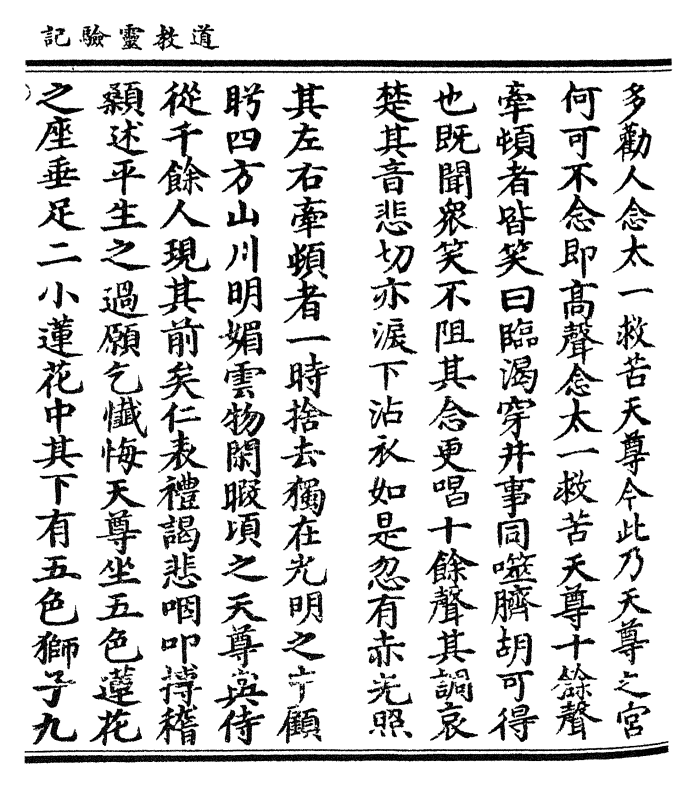 道教靈驗記
多勸人念太一救苦天尊今此乃天尊之宮
何可不念即高聲念太一救苦天尊十餘聲
牽頓者皆笑曰臨渴穿井事同噬臍胡可得
也既聞衆笑不阻其念更唱十餘聲其調哀
楚其音悲切亦淚下沾衣如是忽有赤光照
其左右牽頓者一時捨去獨在光明之中顧
盻四方山川明媚雲物閑暇頃之天尊與侍
從千餘人現其前矣仁表禮謁悲咽叩搏稽
顙述平生之過願乞懺悔天尊坐五色蓮花
之座垂足二小蓮花中其下有五色獅子九